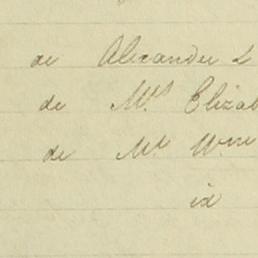 do Alexander L
do Mrs Elizab
do Mr Wm
ix